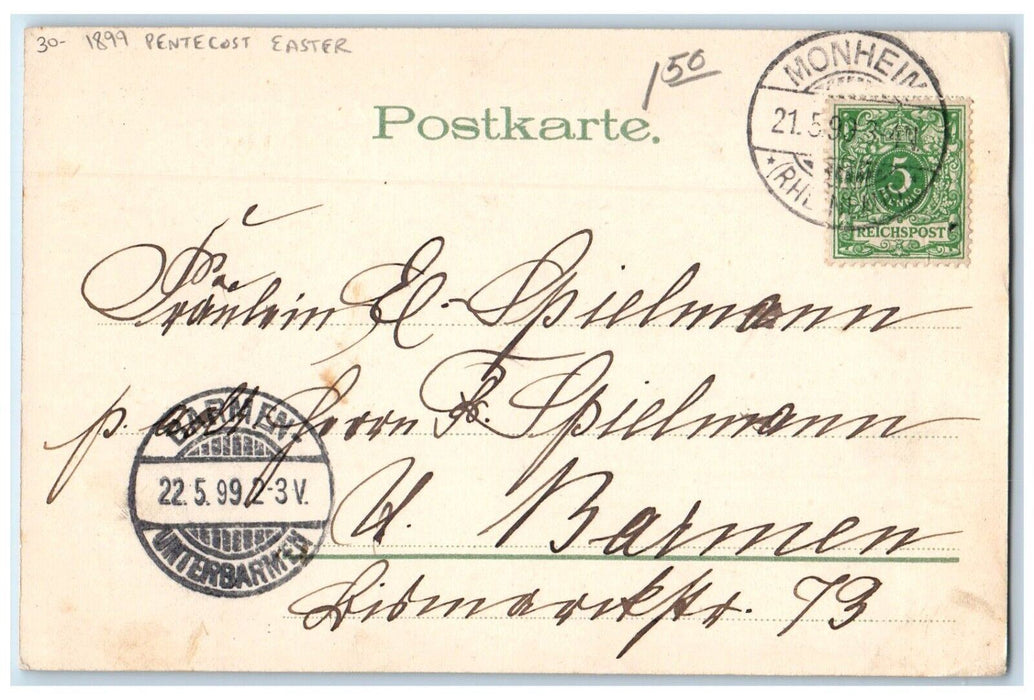 30- 1899 PENTECOST EASTER
150
Postkarte.
MONHEIM
21.5.99
(RHEINLAND)
5
PFENNIG
REICHSPOST
Fräulein E. Spielmann
p. Herrn F. Spielmann
U. Barmen
Bismarckstr. 73
BARMEN-
22.5.99.2-3V.
UNTERBARMEN